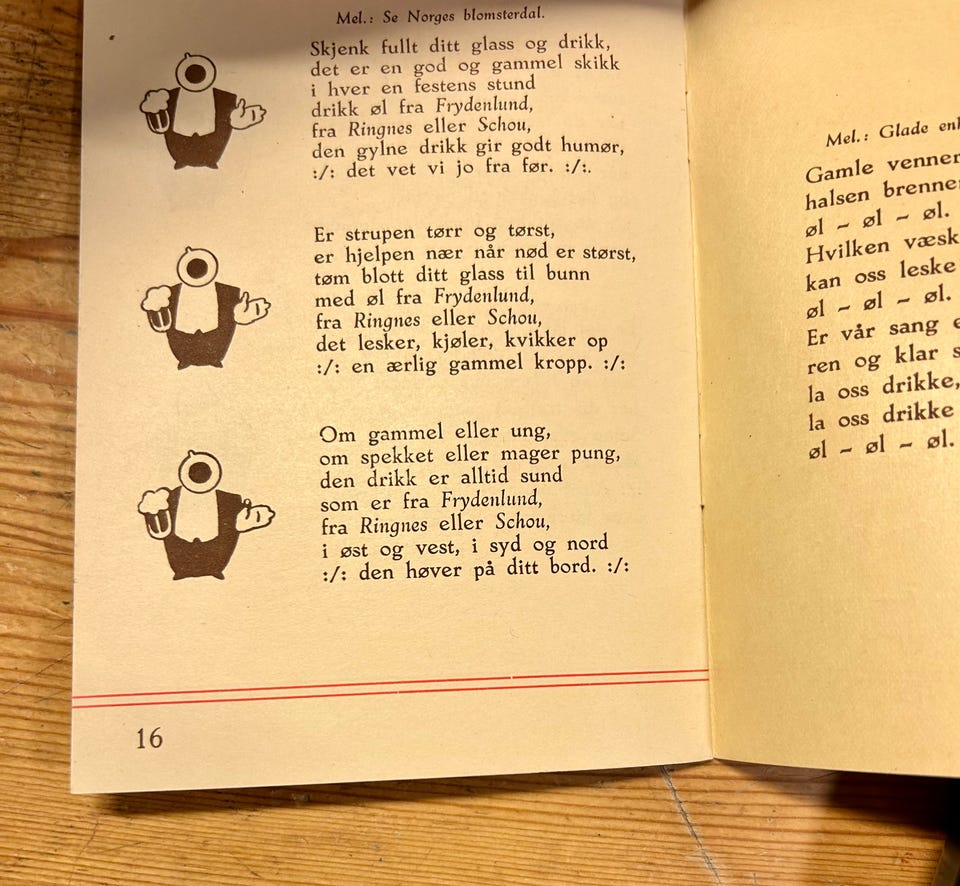 Mel.: Se Norges blomsterdal.
Skjenk fullt ditt glass og drikk,
det er en god og gammel skikk
i hver en festens stund
drikk øl fra Frydenlund,
fra Ringnes eller Schou,
den gylne drikk gir godt humør,
:/: det vet vi jo fra før. :/:.
Er strupen tørr og tørst,
er hjelpen nær når nød er størst,
tøm blott ditt glass til bunn
med øl fra Frydenlund,
fra Ringnes eller Schou,
det lesker, kjøler, kvikker op
:/: en ærlig gammel kropp. :/:
Om gammel eller ung,
om spekket eller mager pung,
den drikk er alltid sund
som er fra Frydenlund,
fra Ringnes eller Schou,
i øst og vest, i syd og nord
:/: den høver på ditt bord. :/:
16
Mel.: Glade
Gamle venner
halsen brenner
øl ~ øl ~ øl.
Hvilken
kan oss leske
øl ~ øl ~ øl.
Er vår sang
ren og klar
la oss drikke,
la oss drikke
øl ~ øl ~ øl.